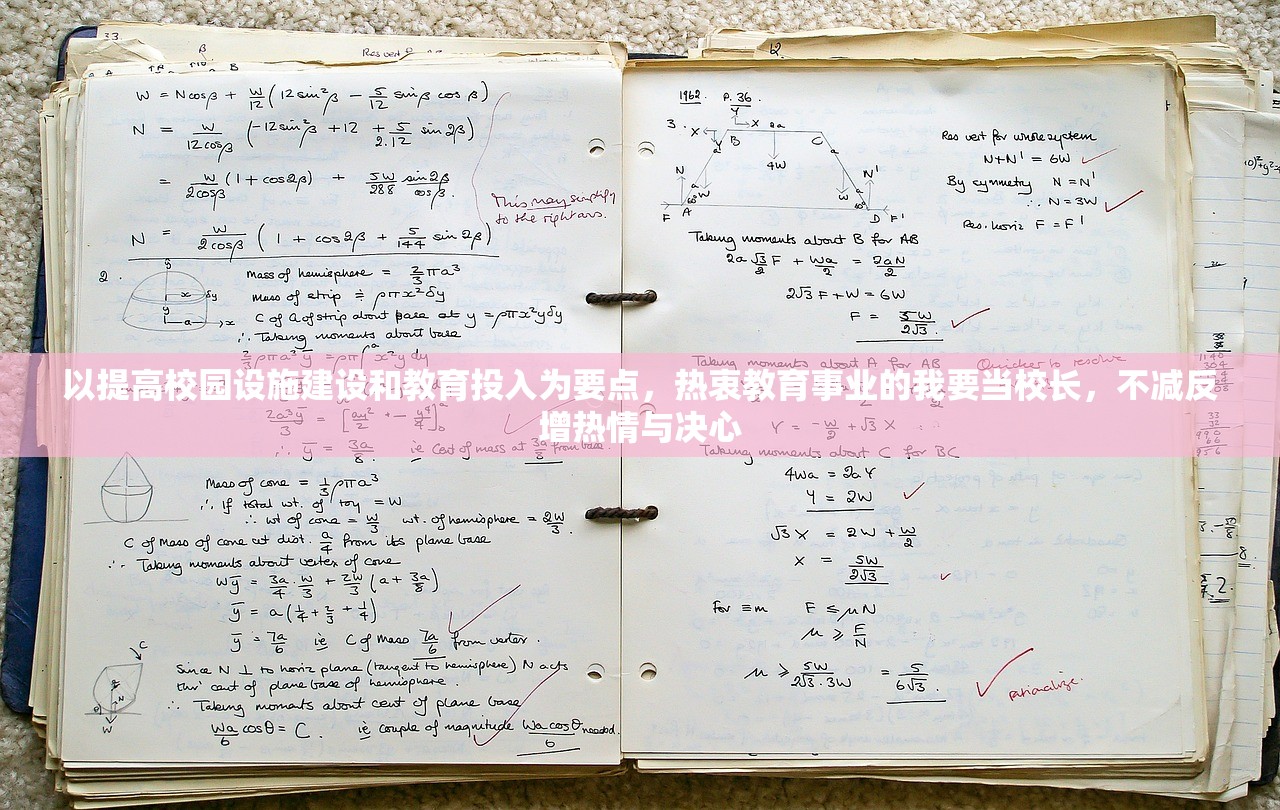 33.
β
Res vert
W = N cos β + W/12 (12 sin²β − 5/12 sin β cos β)
N = W/12cosβ (−12 sin²β + 12 + 5/2.12 sin 2β)
= W/2cosβ (1 + cos 2β) + 5W/288 sin 2β/cos β.
This may simplify
to the right ans.
N = W/2cosβ (1 + cos 2β + 5/144 sin 2β)
2.
Mass of hemisphere = 2/3 πa³
mass of strip ≑ ρπx²δy
C of G of strip about base at y = ρπx²yδy
∴ Taking moments about base
2/3 ρπa³ȳ = ρπ∫ x²y dy
以提高校园设施建设和教育投入为要点，热衷教育事业的我要当校长，不减反
增热情与决心
ȳ = 3a/8 ie Cent of mass at 3a/8 from base.
Mass of cone = 1/3 ρπa³
∴ If total wt. of toy = W
∴ wt of cone = W/3 wt. of hemisphere = 2W/3.
C of Mass of cone at dist. a/4 from its plane base
∴ Taking moments about vertex of cone
Wȳ = 3a/4 . W/3 + 2W/3 (a + 3a/8)
ȳ = a(1/4 + 2/3 + 1/4)
ȳ = 7a/6 ie C of Mass 7a/6 from vertex.
Since N ⊥ to horiz plane (tangent to hemisphere) N acts
thro' cent of plane base of hemisphere.
∴ Taking moments about cent of plane base
Wa/6 cos θ = C. ie couple of magnitude Wa cos θ/6 needed.
1962. P. 36.
3.
Res vert for whole system
N + N' = 6W
By symmetry N = N'
∴ N = 3W
Res. horiz F = F'
Taking moments about B for AB
2a √3/2 F + Wa/2 = 2aN/2
2√3 F + W = 6W
F = 5W/2√3.
Taking moments about A for AB Quicker to resolve
Y = −W/2 + √3 X
Taking moments about C for BC
4Wa = 2aY
Y = 2W
√3 X = 2W + W/2
X = 5W/2√3
For ≡m F ≤ μN
μ ≥ F/N
μ ≥ 5W/2√3.3W = 5/6√3.
rationalize.